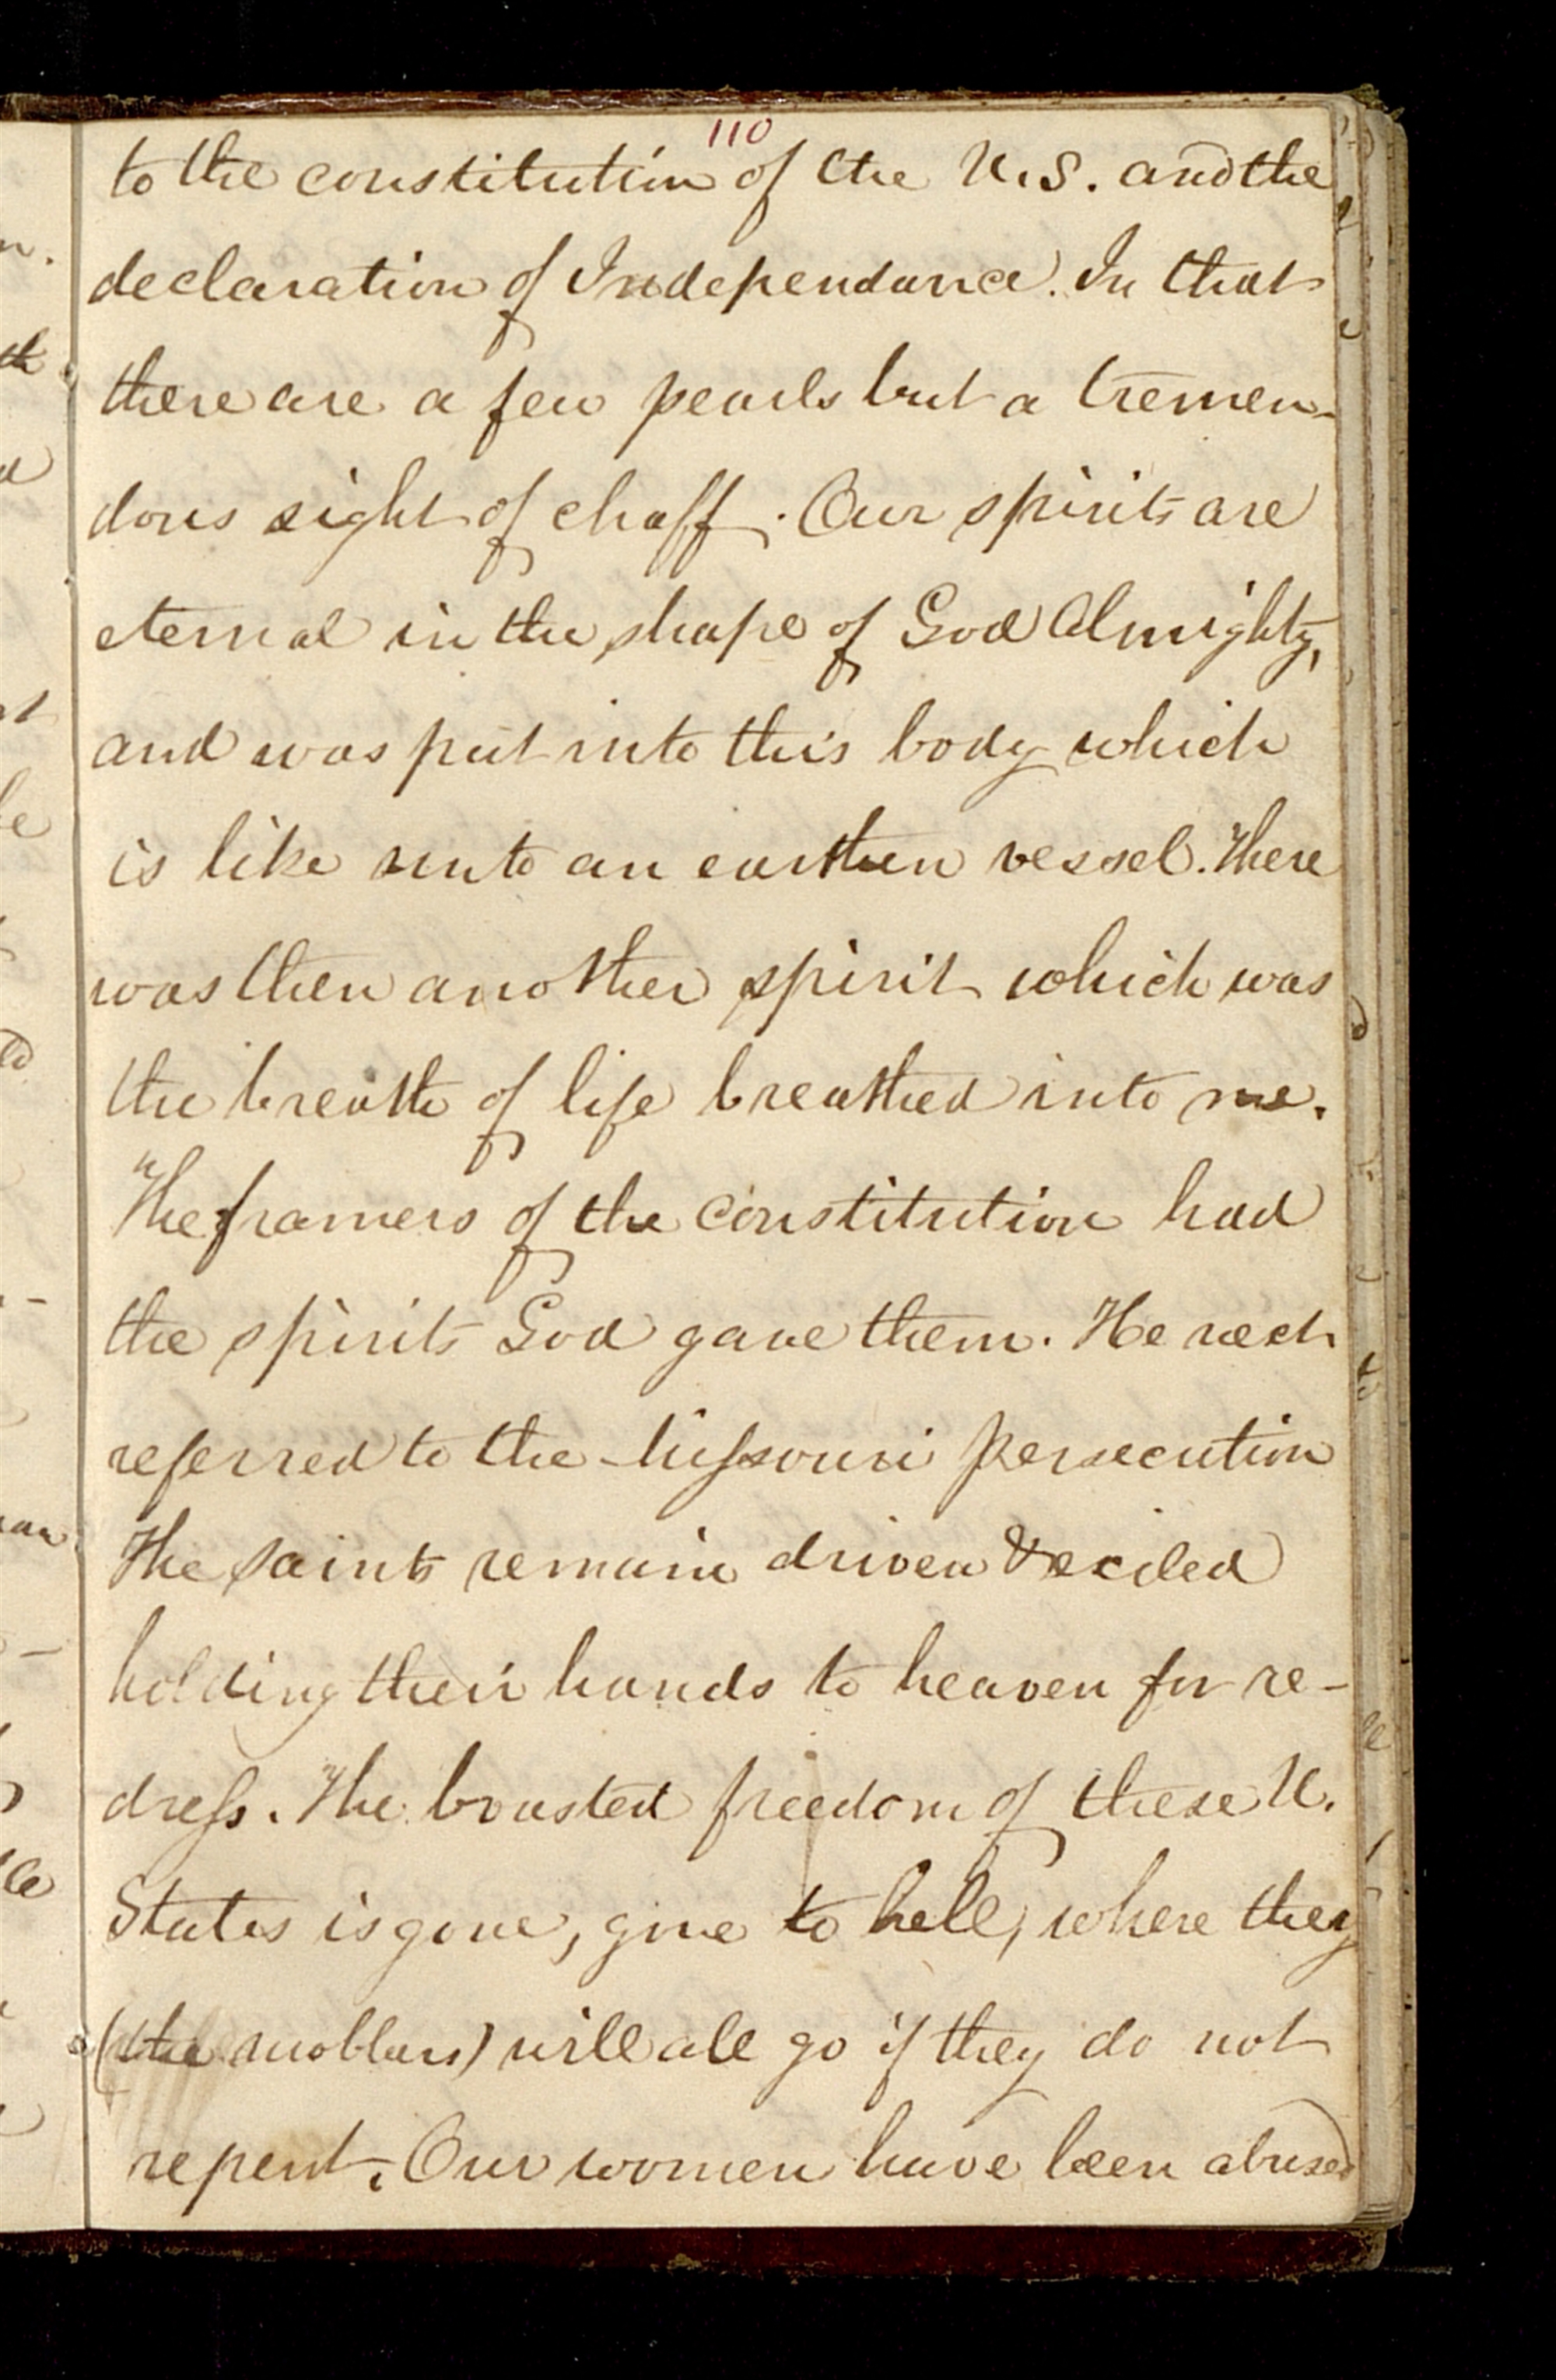 110
to the constitution of the U.S. and the
declaration of Independance. In that
there are a few pearls but a tremen-
dous sight of chaff. Our spirits are
eternal in the shape of God Almighty,
and was put into this body which
is like unto an earthen vessel. There
was then another spirit which was
the breath of life breathed into me.
The framers of the constitution had
the spirits God gave them. He next
referred to the Missouri persecution
The saints remain driven & exiled
holding their hands to heaven for re-
dress. The boasted freedom of these U.
States is gone, gone to hell, where they
(the mobbers) will all go if they do not
repent. Our women have been abused